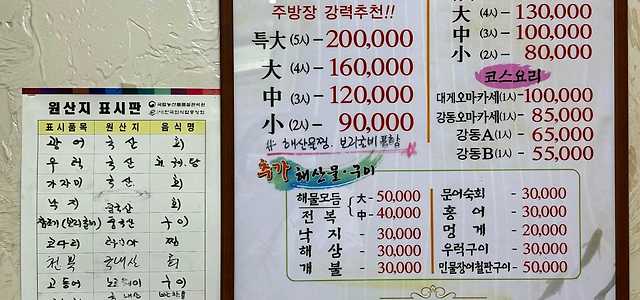 원산지 표시판
국립농산물품질관리원
표시품목 원산지 음식명
광어 국산 회
우럭 국산 회,매운탕
가자미 국산 회
낙지 중국산
중국산 구이
코다리 러시아 찜
전복 국내산 회
고등어 노르웨이 구이
국내산
주방장 강력추천!!
특大 (5人) - 200,000
大 (4人) - 160,000
中 (3人) - 120,000
小 (2人) - 90,000
# 해산물찜. 보리굴비 불참
大 (4人) - 130,000
中 (3人) - 100,000
小 (2人) - 80,000
코스요리
대게오마카세(1人) - 100,000
강동오마카세(1人) - 85,000
강동A (1人) - 65,000
강동B (1人) - 55,000
추가 해산물·구이
해물모듬 大 - 50,000
전복 中 - 40,000
낙지 - 30,000
해삼 - 30,000
개불 - 30,000
문어숙회 - 30,000
홍어 - 30,000
멍게 - 20,000
우럭구이 - 30,000
민물장어철판구이 - 50,000